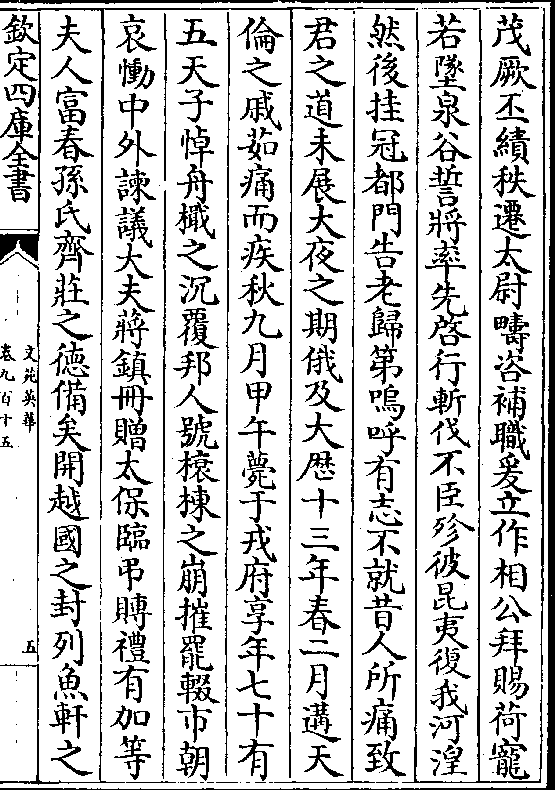 茂厥丕績秩遷太尉疇咨補職爰立作相公拜賜荷寵
若墜泉谷誓將率先啓行斬伐不臣殄彼昆夷復我河湟
然後挂冠都門告老歸第嗚呼有志不就昔人所痛致
君之道未展大夜之期俄及大厯十三年春二月遘天
倫之戚茹痛而疾秋九月甲午薨于戎府享年七十有
五天子悼舟檝之沉覆邦人號榱棟之崩摧罷輟市朝
哀慟中外諫議大夫蔣鎮冊贈太保臨弔賻禮有加等
夫人富春孫氏齊莊之德備矣開越國之封列魚軒之
欽定四庫全書
文苑英華
卷九百十五
五